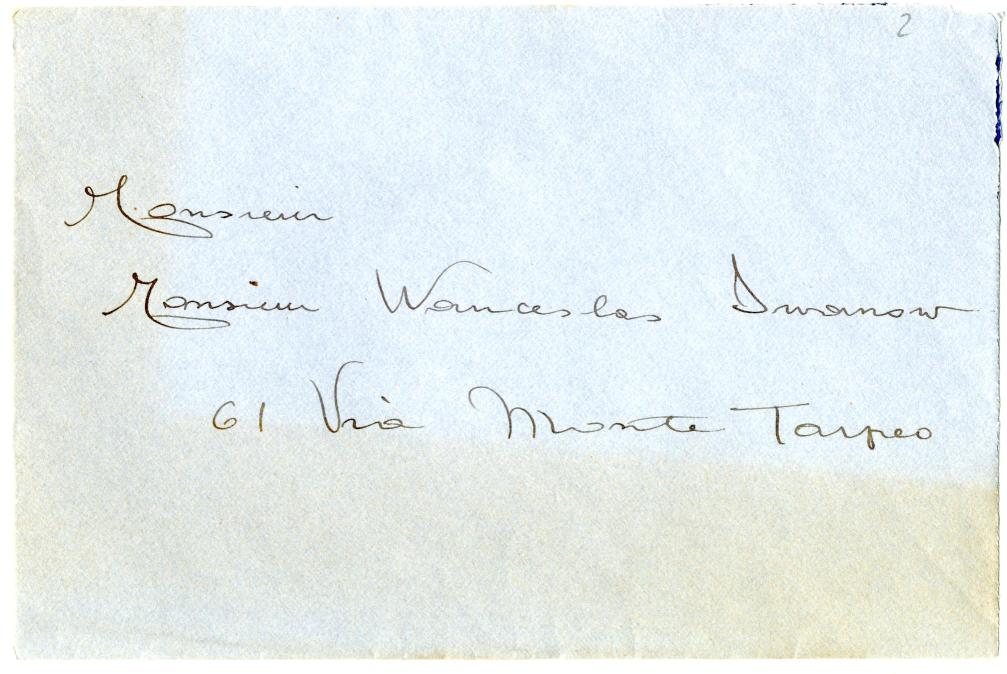 2
Monsieur
Monsieur Wanceslas Ivanow
61 Via Monte Tarpeo